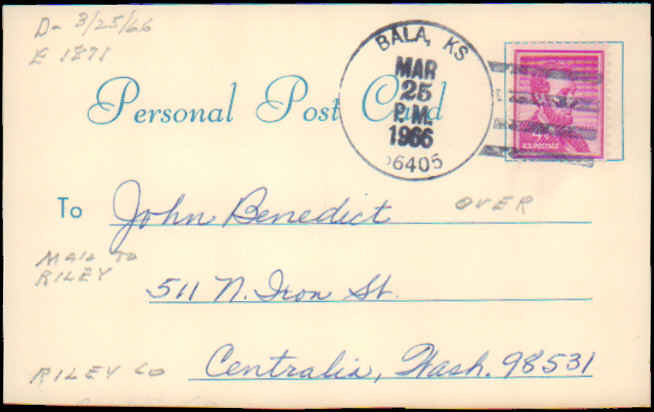 D- 3/25/66
E 1871
BALA, KS
MAR
25
P.M.
1966
66405
4¢
U.S. POSTAGE
Personal Post Card
To John Benedict
OVER
MAIL TO
RILEY
511 N. Iron St.
RILEY CO
Centralia, Wash. 98531